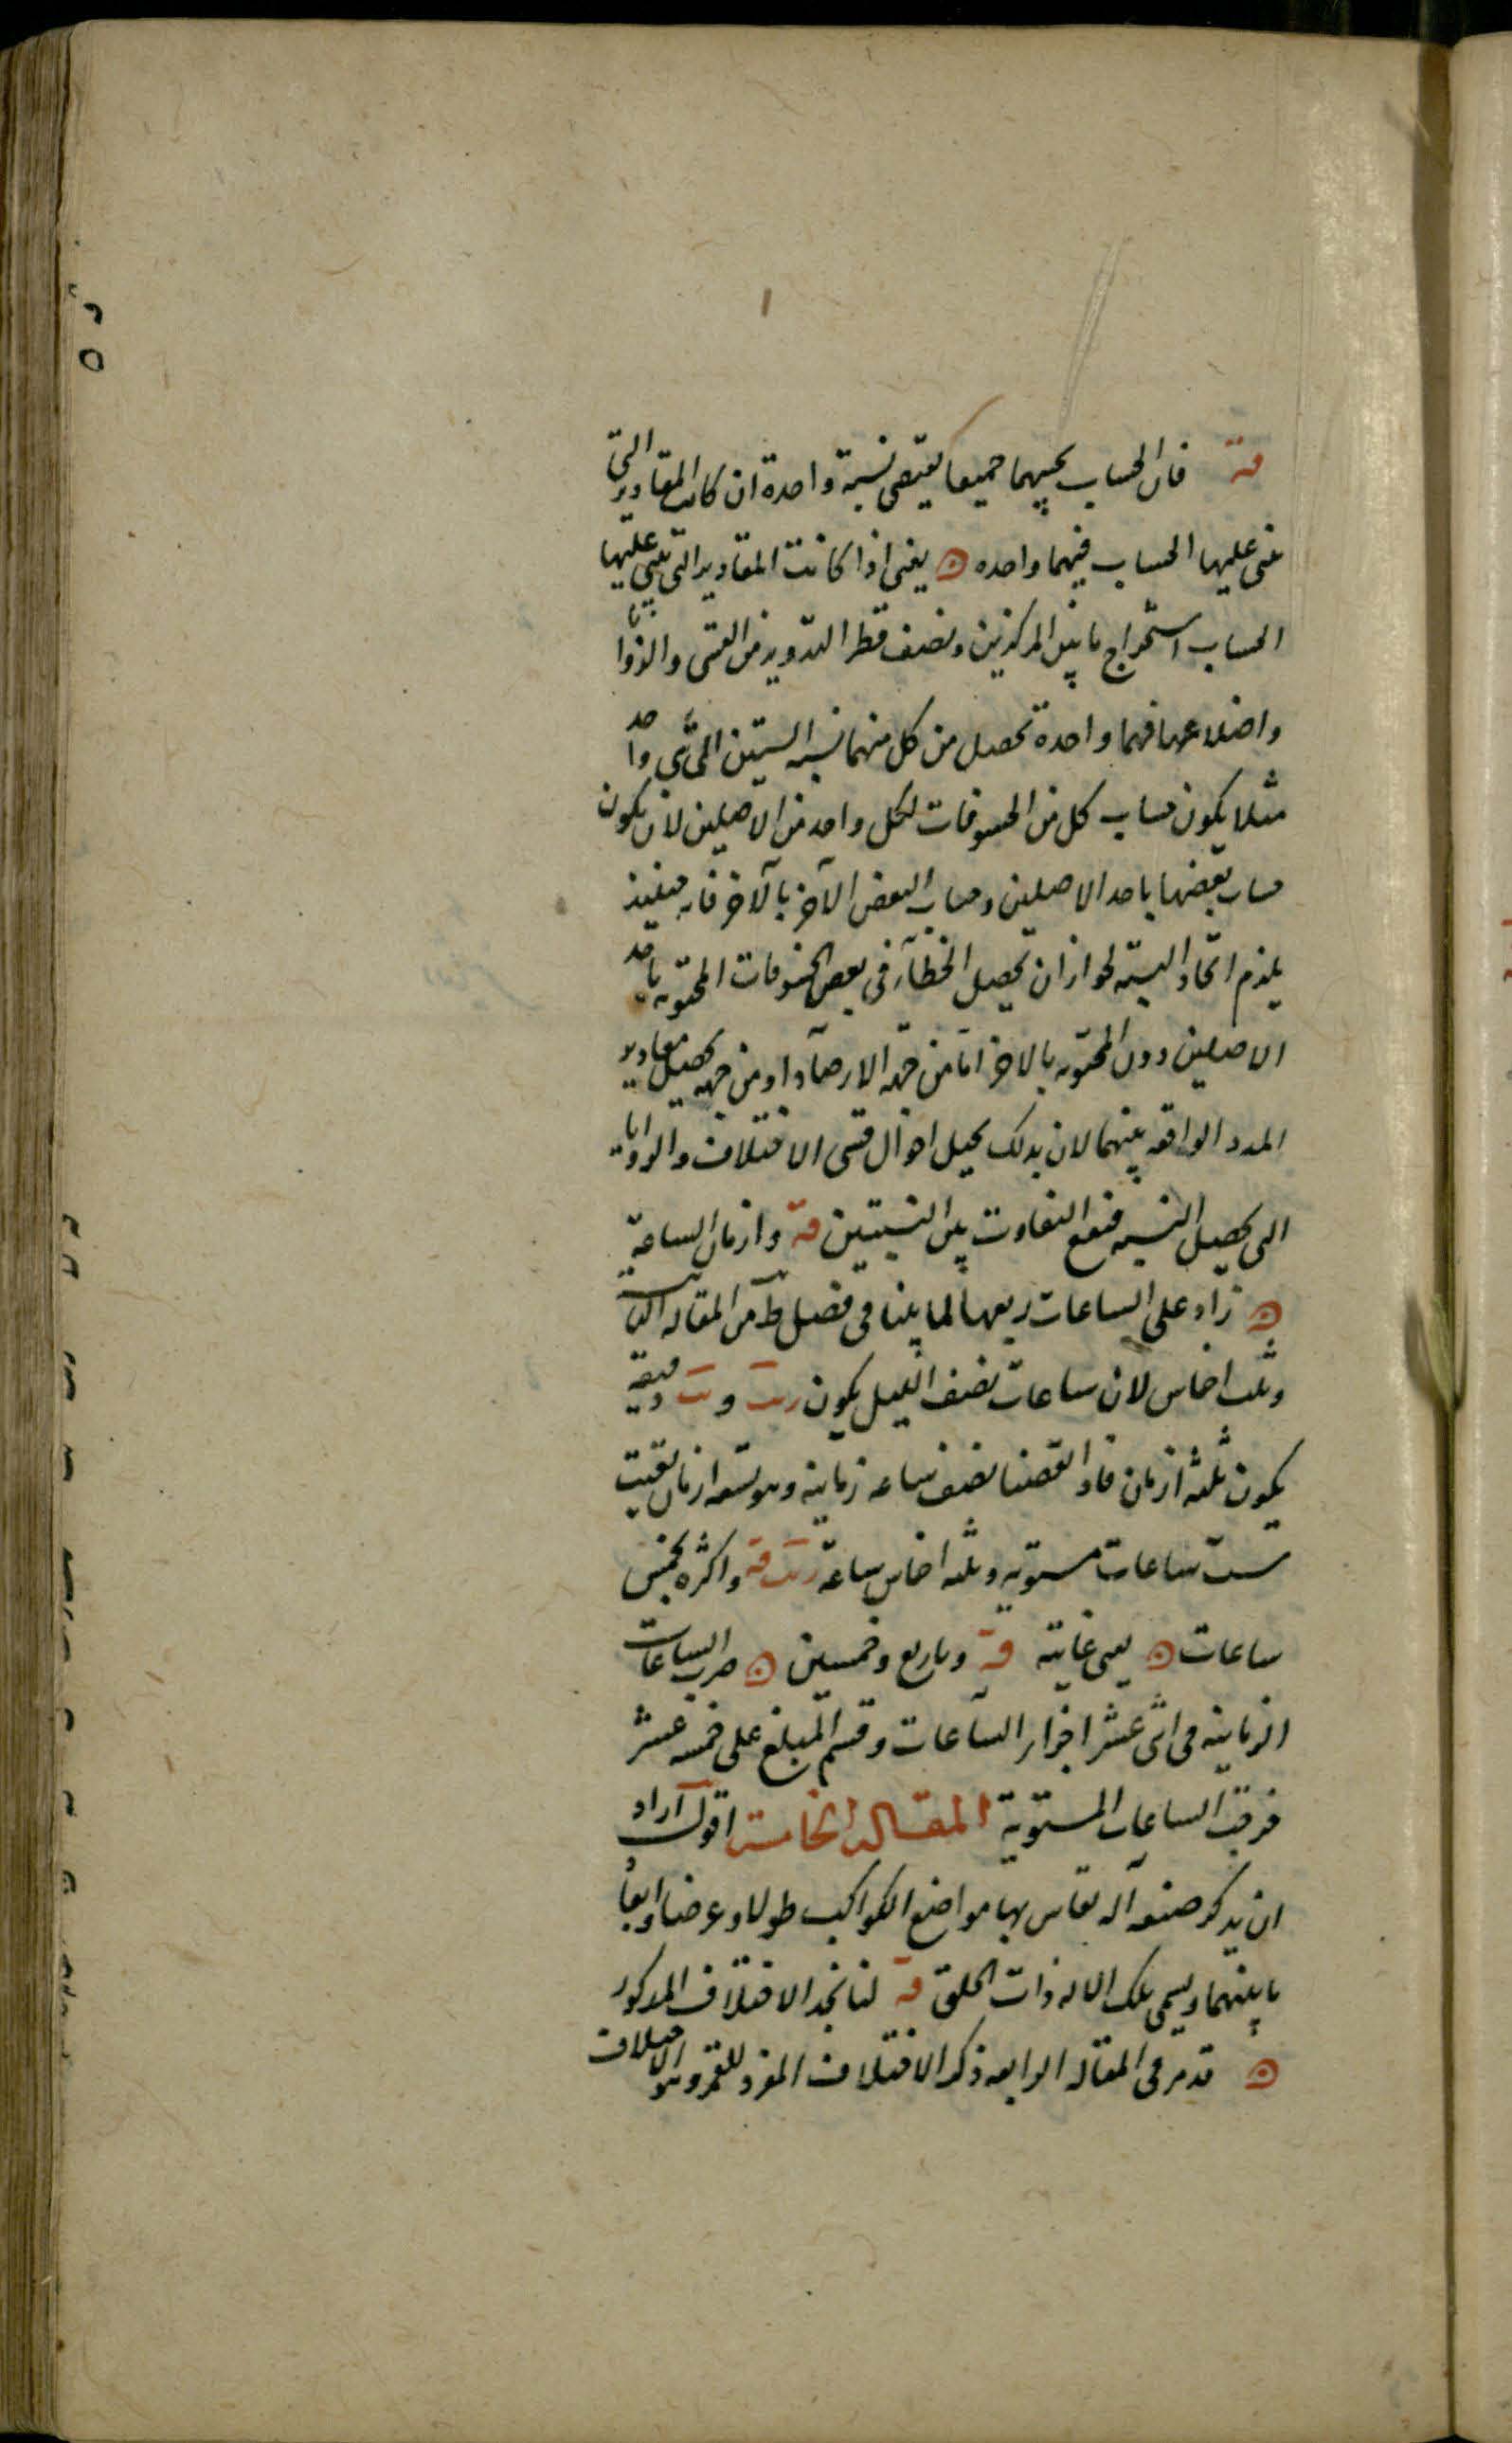 قه فان الحساب بحسبهما جميعا يقتضى نسبة واحدة ان كانت المقادير التى
بنى عليها الحساب فيهما واحده يعنى اذا كانت المقادير التى بنى عليها
الحساب استخراج ما بين المركزين ونصف قطر التدوير من القسى والزوايا
واضلاعها فيهما واحدة تحصل من كل منهما نسبه الستين الى شى واحد
مثلا يكون حساب كل من الخسوفات لكل واحد من الاصلين لان يكون
حساب بعضها باحد الاصلين وحساب البعض الآخر بالآخر فانه حينئذ
يلزم اتحاد النسبة لجواز ان يحصل الخطأ فى بعض الخسوفات المحسوبه باحد
الاصلين دون المحسوبه بالاخر اما من جهة الارصاد او من جهه تحصيل مقادير
المدد الواقعه بينهما لان بذلك يحيل احوال قسى الاختلاف والزوايا
الى تحصيل النسبه فيقع التفاوت بين النسبتين قه وازمان الساعة
زاد على الساعات ربعها لما بينا فى فصل ط من المقاله الثانية
وثلث اخماس لان ساعات نصف الليل يكون و دقيقه
يكون ثلثه ازمان فاذا نقصنا نصف ساعه زمانيه وهو تسعه ازمان بقيت
ست ساعات مستويه وثلثه اخماس ساعة قه واكثره بخمس
ساعات يعنى غايته قه وباربع وخمسين ضرب الساعات
الزمانيه فى اثنى عشر اجزاء الساعات وقسم المبلغ على خمسه عشر
فخرجت الساعات المستوية المقاله الخامسه اقول اراد
ان يذكر صنعه آله يقاس بها مواضع الكواكب طولا وعرضا وابعاد
ما بينهما ويسمى تلك الاله ذات الحلق قه لنا نجد الاختلاف المذكور
قد مر فى المقاله الرابعه ذكر الاختلاف المفرد للقمر وهو الاختلاف